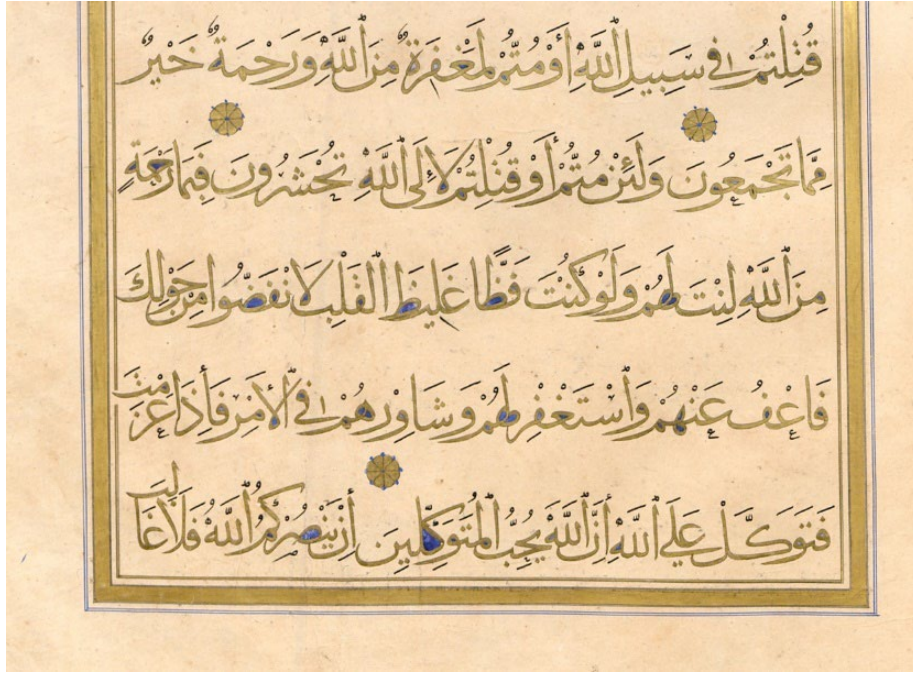 قُتِلْتُمْ فِي سَبِيلِ اللَّهِ أَوْ مُتُّمْ لَمَغْفِرَةٌ مِنَ اللَّهِ وَرَحْمَةٌ خَيْرٌ
مِمَّا تَجْمَعُونَ وَلَئِنْ مُتُّمْ أَوْ قُتِلْتُمْ لَإِلَى اللَّهِ تُحْشَرُونَ فَبِمَا رَحْمَةٍ
مِنَ اللَّهِ لِنْتَ لَهُمْ وَلَوْ كُنْتَ فَظًّا غَلِيظَ الْقَلْبِ لَانْفَضُّوا مِنْ حَوْلِكَ
فَاعْفُ عَنْهُمْ وَاسْتَغْفِرْ لَهُمْ وَشَاوِرْهُمْ فِي الْأَمْرِ فَإِذَا عَزَمْتَ
فَتَوَكَّلْ عَلَى اللَّهِ إِنَّ اللَّهَ يُحِبُّ الْمُتَوَكِّلِينَ إِنْ يَنْصُرْكُمُ اللَّهُ فَلَا غَالِبَ